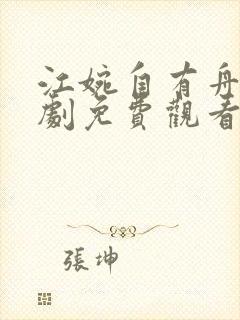 江婉自有舟
劇免費觀看
張坤